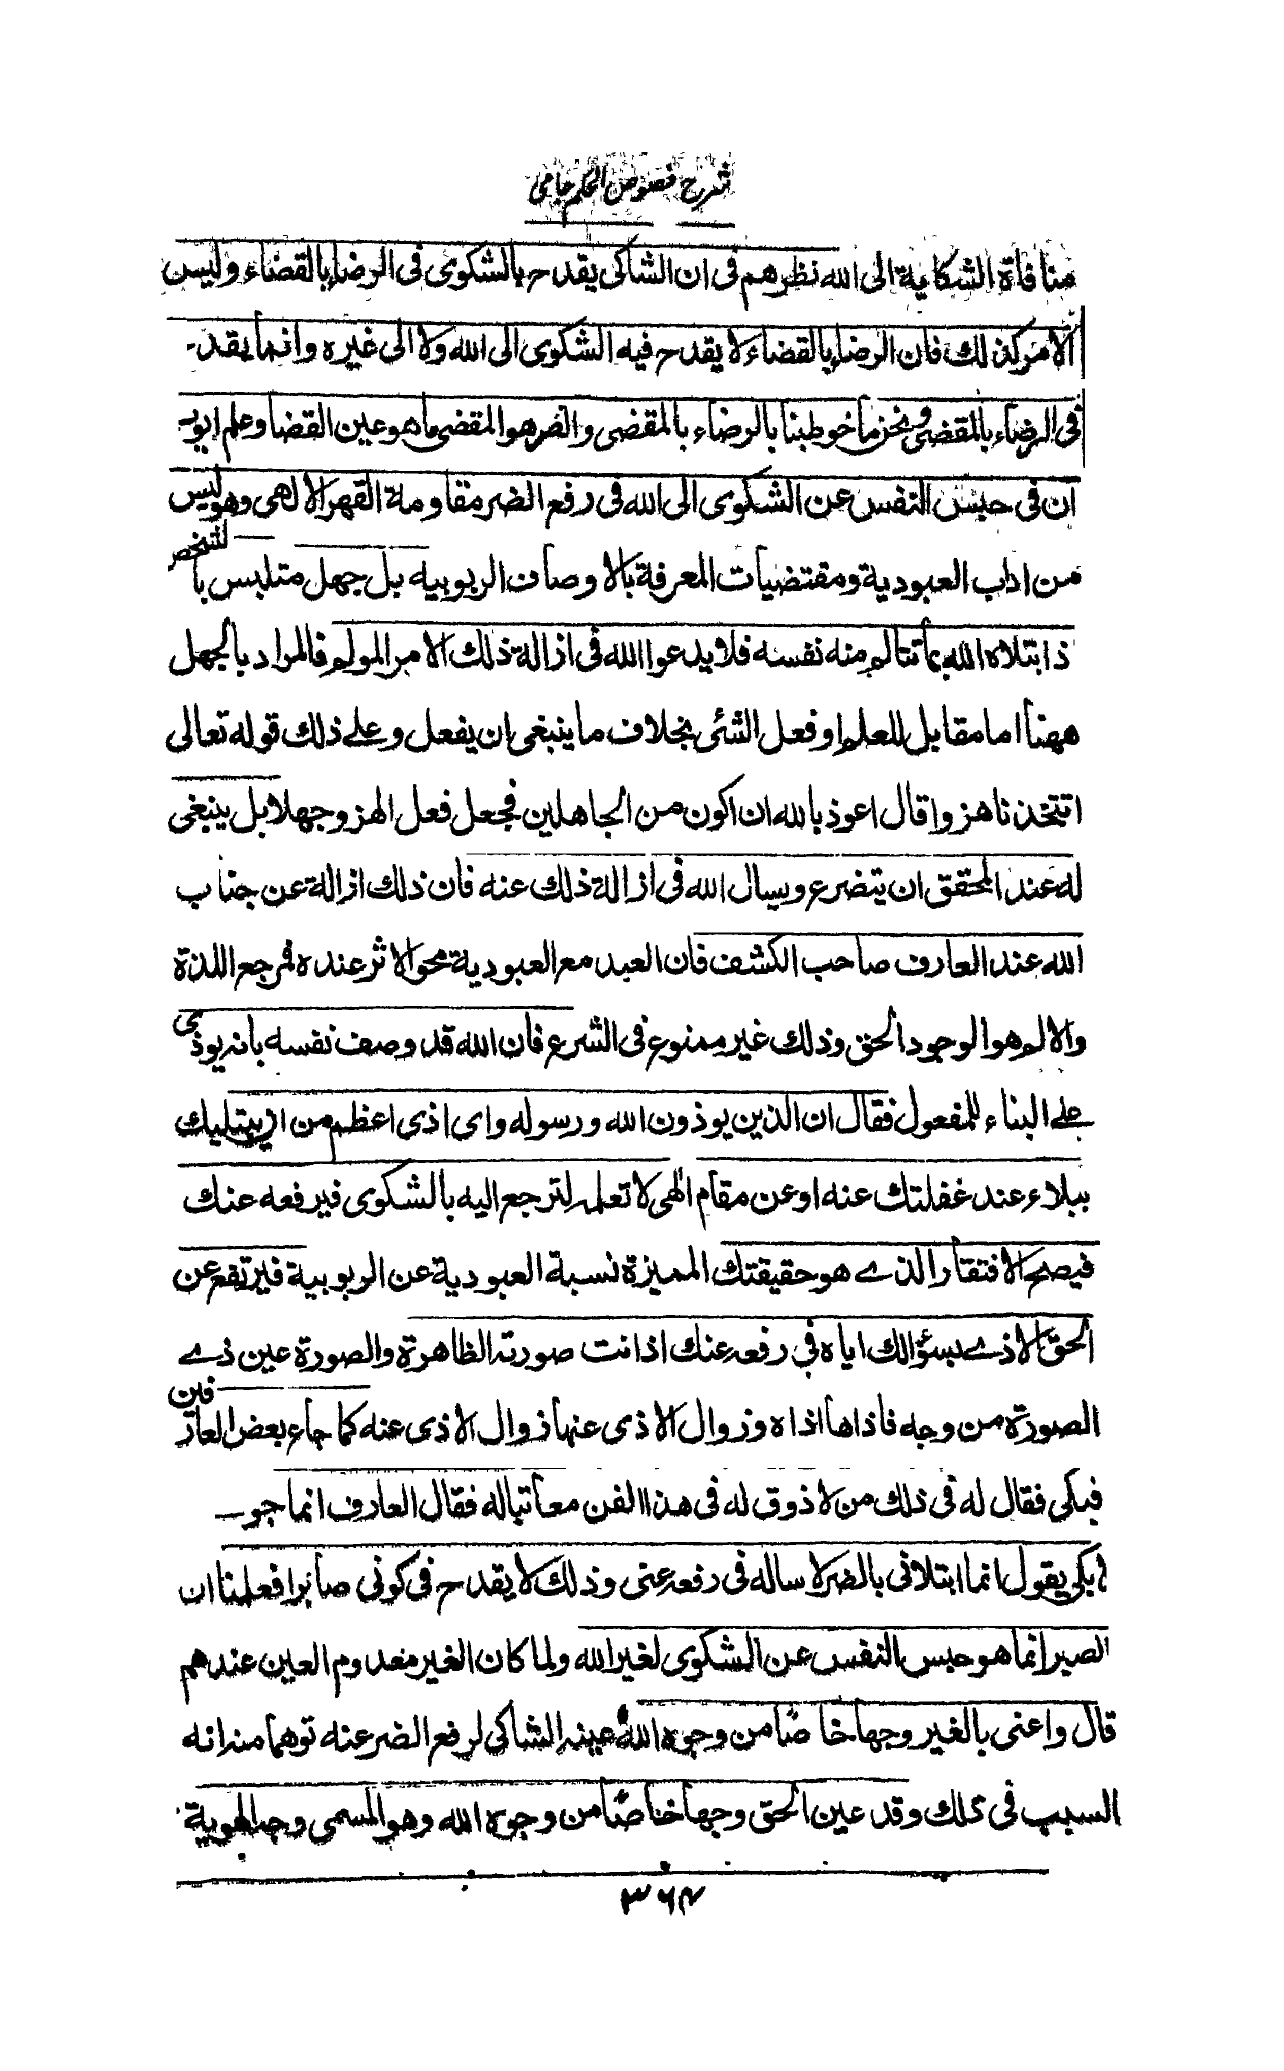 شرح فصوص الحكم جامى
منافاة الشكاية الى الله نظرهم فى ان الشاكى يقدح بالشكوى فى الرضاء بالقضاء وليس
الامر كذلك فان الرضاء بالقضاء لا يقدح فيه الشكوى الى الله ولا الى غيره وانما يقدح
فى الرضاء بالمقضى ونحن ما خوطبنا بالرضاء بالمقضى والضر هو المقضى ما هو عين القضا وعلم ايوب
ان فى حبس النفس عن الشكوى الى الله فى رفع الضر مقاومة القهر الالهى وهو ليس
من اداب العبودية ومقتضيات المعرفة بالاوصاف الربوبيه بل جهل متلبس بالشخص
ذا ابتلاه الله بما تتالم منه نفسه فلا يدعوا الله فى ازالة ذلك الامر المولم فالمراد بالجهل
ههنا اما مقابل للعلم او فعل الشئى بخلاف ما ينبغى ان يفعل وعلے ذلك قوله تعالى
اتتخذنا هزوا قال اعوذ بالله ان اكون من الجاهلين فجعل فعل الهزو جهلا بل ينبغى
له عند المحقق ان يتضرع ويسال الله فى ازالة ذلك عنه فان ذلك ازالة عن جناب
الله عند العارف صاحب الكشف فان العبد مع العبودية محو الاثر عنده فمرجع اللذة
والالم هو الوجود الحق وذلك غير ممنوع فى الشرع فان الله قد وصف نفسه بانه يوذى
علے البناء للمفعول فقال ان الذين يوذون الله ورسوله واى اذى اعظم من ان يبتليك
ببلاء عند غفلتك عنه او عن مقام الهى لا تعلمه لترجع اليه بالشكوى فيرفعه عنك
فيصح الافتقار الذے هو حقيقتك المميزة نسبة العبودية عن الربوبية فيرتفع عن
الحق الاذے بسؤالك اياه في رفعه عنك اذ انت صورته الظاهرة والصورة عين ذے
الصورة من وجه فاذاها اذاه وزوال الاذى عنها زوال الاذى عنه كما جاء بعض العارفين
فبكى فقال له فى ذلك من لا ذوق له فى هذا الفن معاتبا له فقال العارف انما جو
بكى يقول انما ابتلانى بالضر لاساله فى رفعه عنى وذلك لا يقدح فى كونى صابرا فعلمنا ان
الصبر انما هو حبس النفس عن الشكوى لغير الله ولما كان الغير معدوم العين عندهم
قال واعنى بالغير وجها خاصًا من وجوه الله عينه الشاكى لرفع الضر عنه توهما منه انه
السبب فى ذلك وقد عين الحق وجها خاصًا من وجوه الله وهو المسمى وجه الهوية
٣٦٤